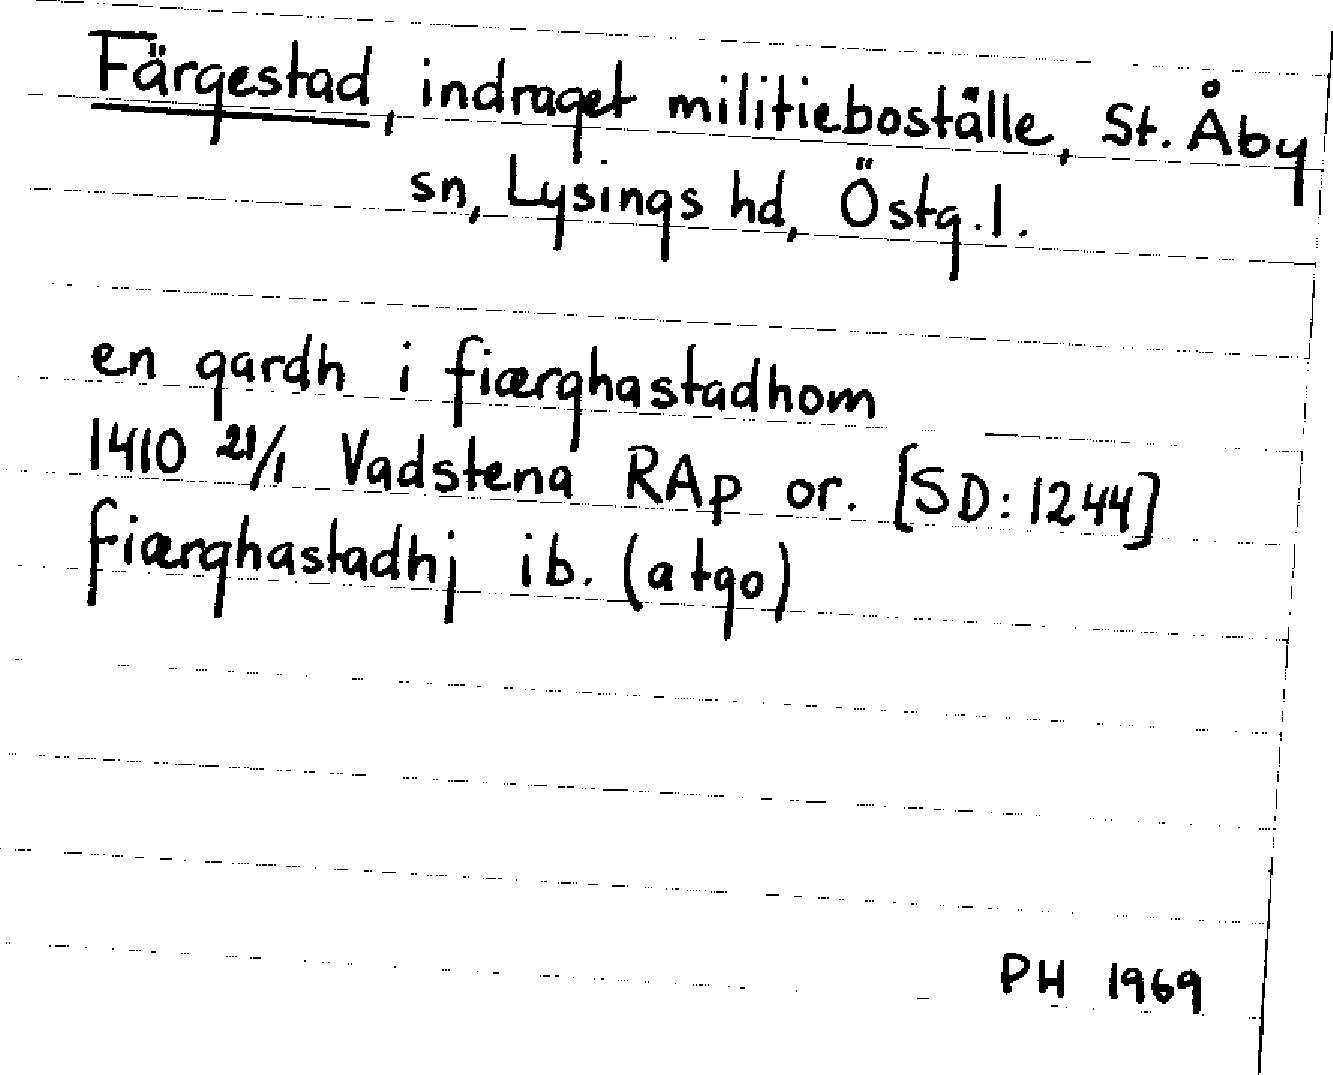 Färgestad, indraget militieboställe, St. Åby
sn, Lysings hd, Östg.l.
en gardh i fiærghastadhom
1410 21/1 Vadstena RAp or. [SD: 1244]
fiærghastadhj ib. (atgo)
PH 1969